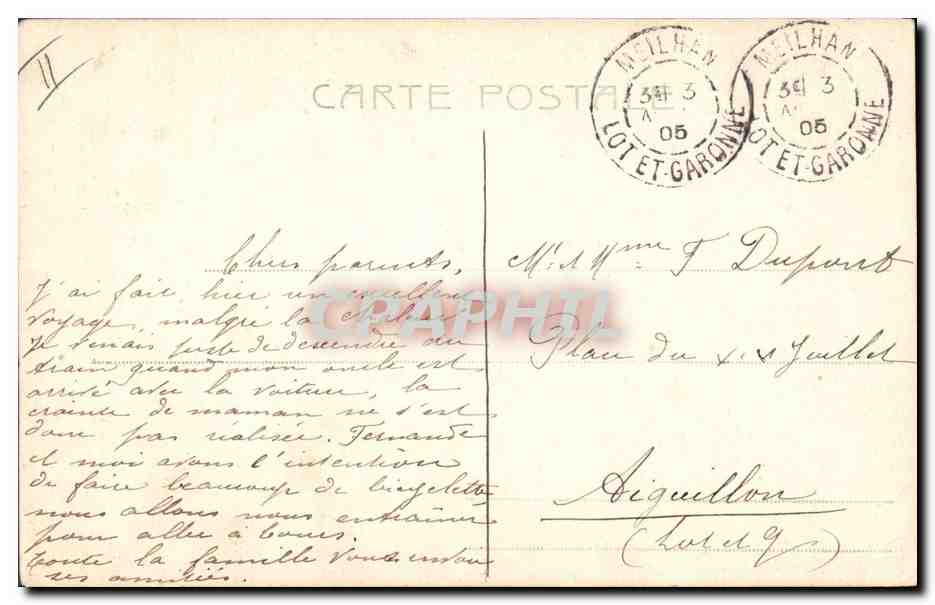 11
CARTE POSTALE
MEILHAN
3E 3
05
LOT ET-GARONNE
MEILHAN
3E 3
05
LOT ET-GARONNE
Chers parents,
J'ai fait hier un excellent
voyage, malgré la chaleur
Je venais juste de descendre du
train quand mon oncle est
arrivé avec la voiture, la
crainte de maman ne s'est
donc pas réalisée. Fernande
et moi avons l'intention
de faire beaucoup de bicyclette
nous allons nous entraîner
pour aller à Tours.
toute la famille vous envoie
ses amitiés.
Mr & Mme F Dupont
Place du XIV Juillet
Aiguillon
(Lot et G)
CPAPHIL